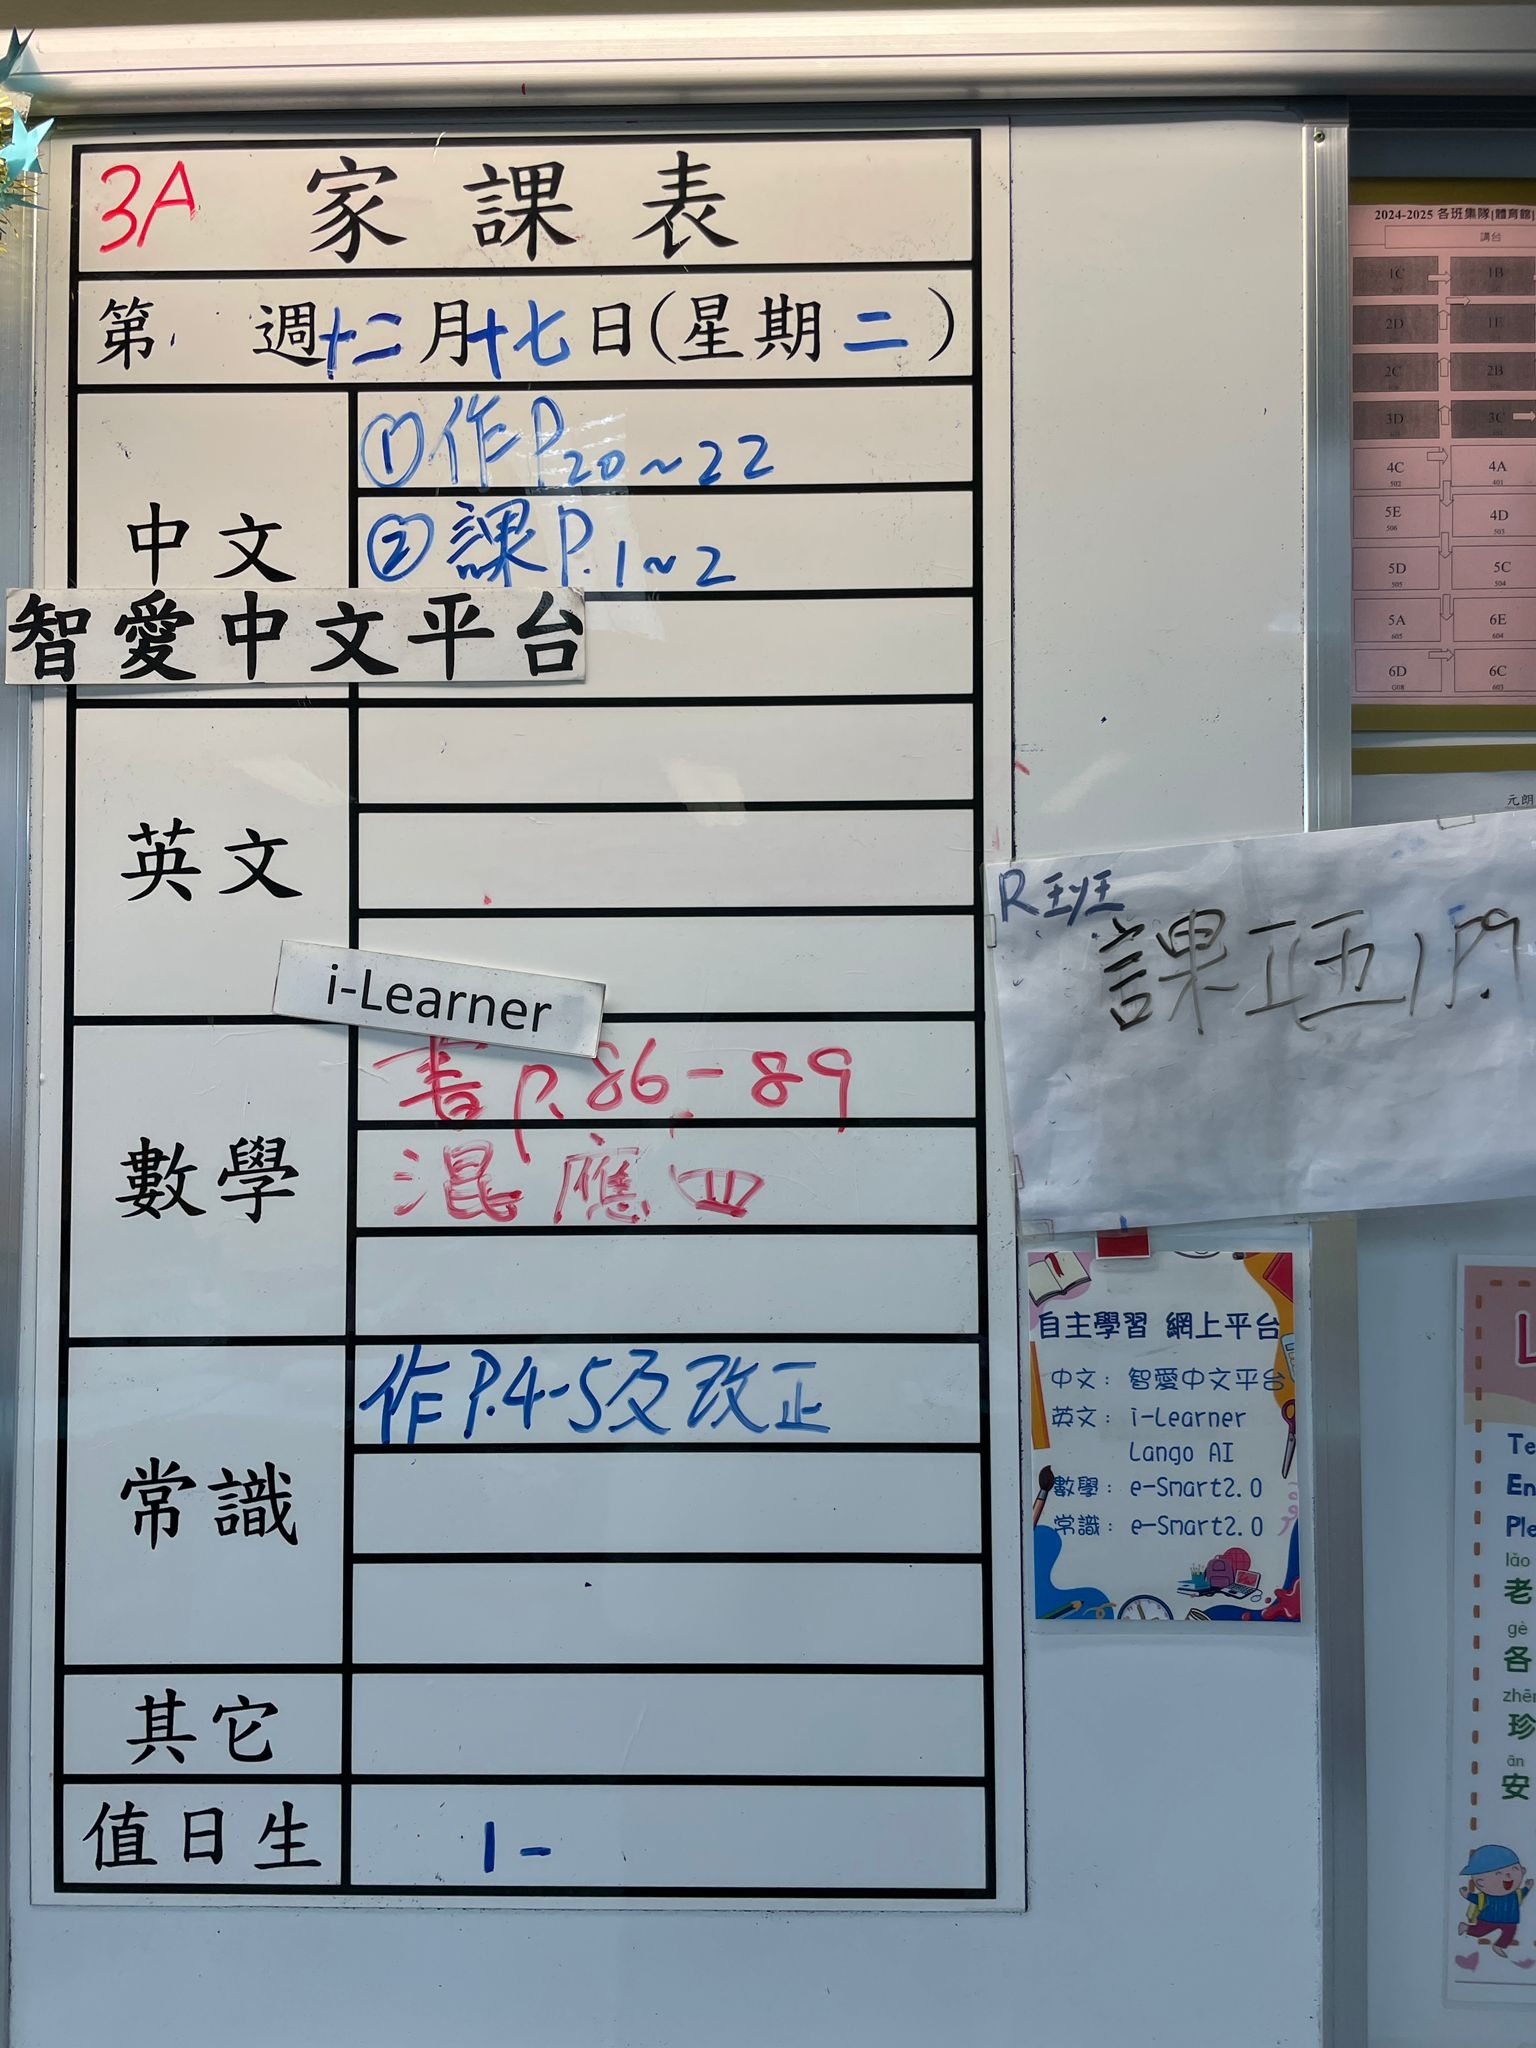 3A 家課表
第 週十二月十七日(星期二)
中文
①作P.20~22
②課P.1~2
智愛中文平台
英文
i-Learner
數學
書P.86-89
混應四
常識
作P.4-5及改正
其它
值日生
1-
2024-2025 各班集隊[體育館]
講台
1C 1B
2D 1E
2C 2B
3D 3C
4C 4A
502 401
5E 4D
506 503
5D 5C
505 504
5A 6E
605 604
6D 6C
G08 603
元朗
R班
自主學習 網上平台
中文：智愛中文平台
英文：i-Learner
Lango AI
數學：e-Smart2.0
常識：e-Smart2.0
L
Te
En
Ple
lǎo
老
gè
各
zhēn
珍
ān
安